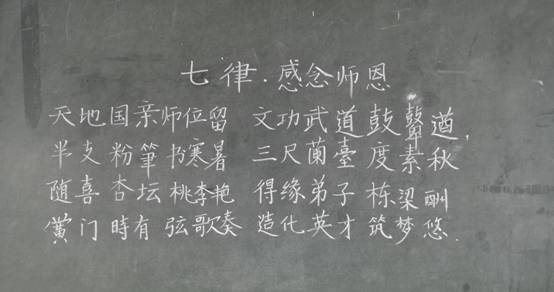 七律·感念师恩
天地国亲师位留 文功武道鼓鼙遒,
半支粉筆书寒暑 三尺蘭臺度素秋
随喜杏坛桃李艳 得缘弟子栋梁酬
黉门時有弦歌奏 造化英才筑梦悠.